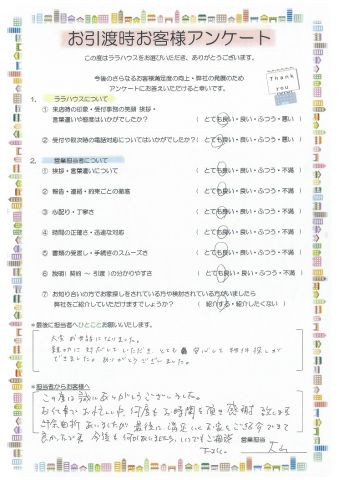 お引渡時お客様アンケート
この度はララハウスをお選びいただき、ありがとうございます。
今後のさらなるお客様満足度の向上・弊社の発展のため
アンケートにお答えいただけると幸いです。
Thank you
1. ララハウスについて
① 来店時の印象・受付事務の笑顔 挨拶・
言葉遣いや態度はいかがでしたか? ( とても良い・良い・ふつう・悪い )
② 受付や取次時の電話対応についてはいかがでしたか? ( とても良い・良い・ふつう・悪い )
2. 営業担当者について
① 挨拶・言葉遣いについて ( とても良い・良い・ふつう・不満 )
② 報告・連絡・約束ごとの厳守 ( とても良い・良い・ふつう・不満 )
③ 心配り・丁寧さ ( とても良い・良い・ふつう・不満 )
④ 時間の正確さ・迅速な対応 ( とても良い・良い・ふつう・不満 )
⑤ 書類の受渡し・手続きのスムーズさ ( とても良い・良い・ふつう・不満 )
⑥ 説明( 契約 ～ 引渡 )の分かりやすさ ( とても良い・良い・ふつう・不満 )
⑦ お知り合いの方でお家探しをされている方や検討されている方がいましたら
弊社をご紹介していただけますでしょうか? ( 紹介する・紹介したくない )
*最後に担当者へひとことお願いいたします。
大変お世話になりました。
親切に対応していただき、とても 安心して物件探しが
できました。ありがとうございました。
*担当者からお客様へ
この度は誠にありがとうございました。
お仕事でお忙しい中、何度もお時間を頂き感謝
紆余曲折ありましたが 最後に満足いくお家をご紹介できて
良かったです 今後も何かありましたら、いつでもご相談
下さい。 営業担当